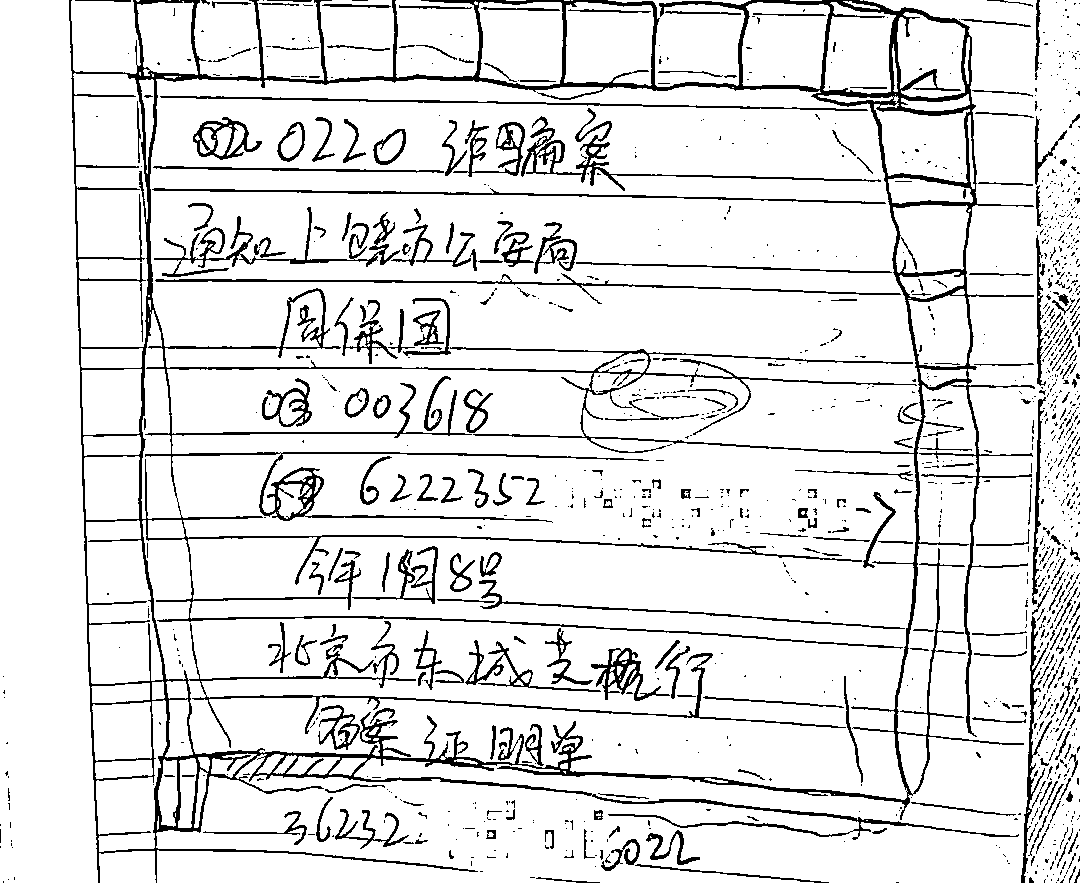 0220 诈骗案
通知上饶市公安局
周保国
003618
6222352
今年1月8号
北京市东城支行
备案证明单
36232 6022